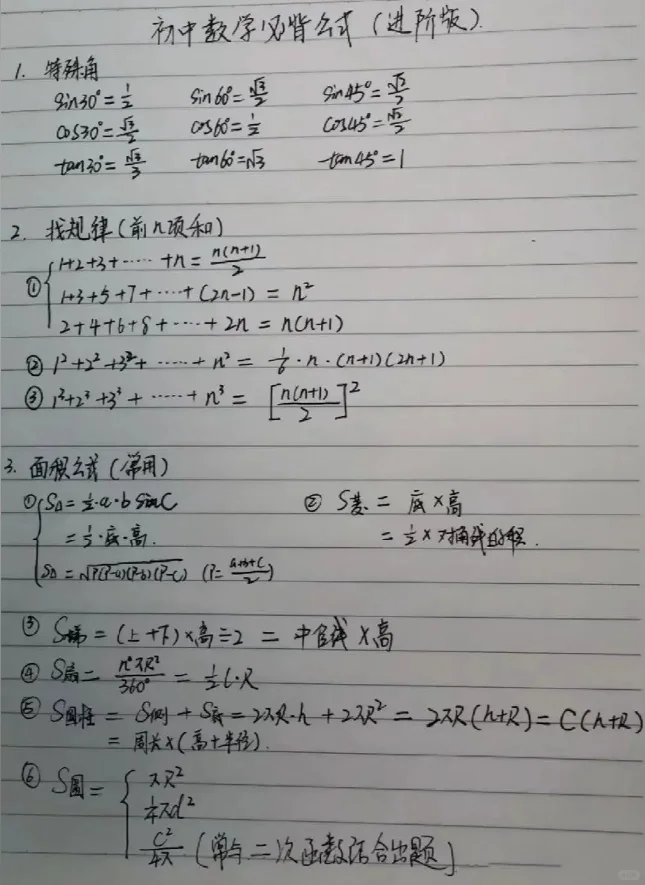 初中数学必背公式（进阶版）.
1. 特殊角
sin30°=1/2 sin60°=√3/2 sin45°=√2/2
cos30°=√3/2 cos60°=1/2 cos45°=√2/2
tan30°=√3/3 tan60°=√3 tan45°=1
2. 找规律（前n项和）
① 1+2+3+……+n=n(n+1)/2
1+3+5+7+……+(2n-1)=n²
2+4+6+8+……+2n=n(n+1)
② 1²+2²+3²+……+n²=1/6·n·(n+1)(2n+1)
③ 1³+2³+3³+……+n³=[n(n+1)/2]²
3. 面积公式（常用）
① S△=1/2·a·b sinC ② S菱=底×高
=1/2·底·高. =1/2×对角线的积.
S△=√P(P-a)(P-b)(P-c) (P=a+b+c/2)
③ S梯=(上+下)×高÷2=中位线×高
④ S扇=n°πR²/360°=1/2 l·R
⑤ S圆柱=S侧+S底=2πR·h+2πR²=2πR(h+R)=C(h+R)
=周长×(高+半径).
⑥ S圆= πR²
1/4πd²
C²/4π (常与二次函数结合出题)